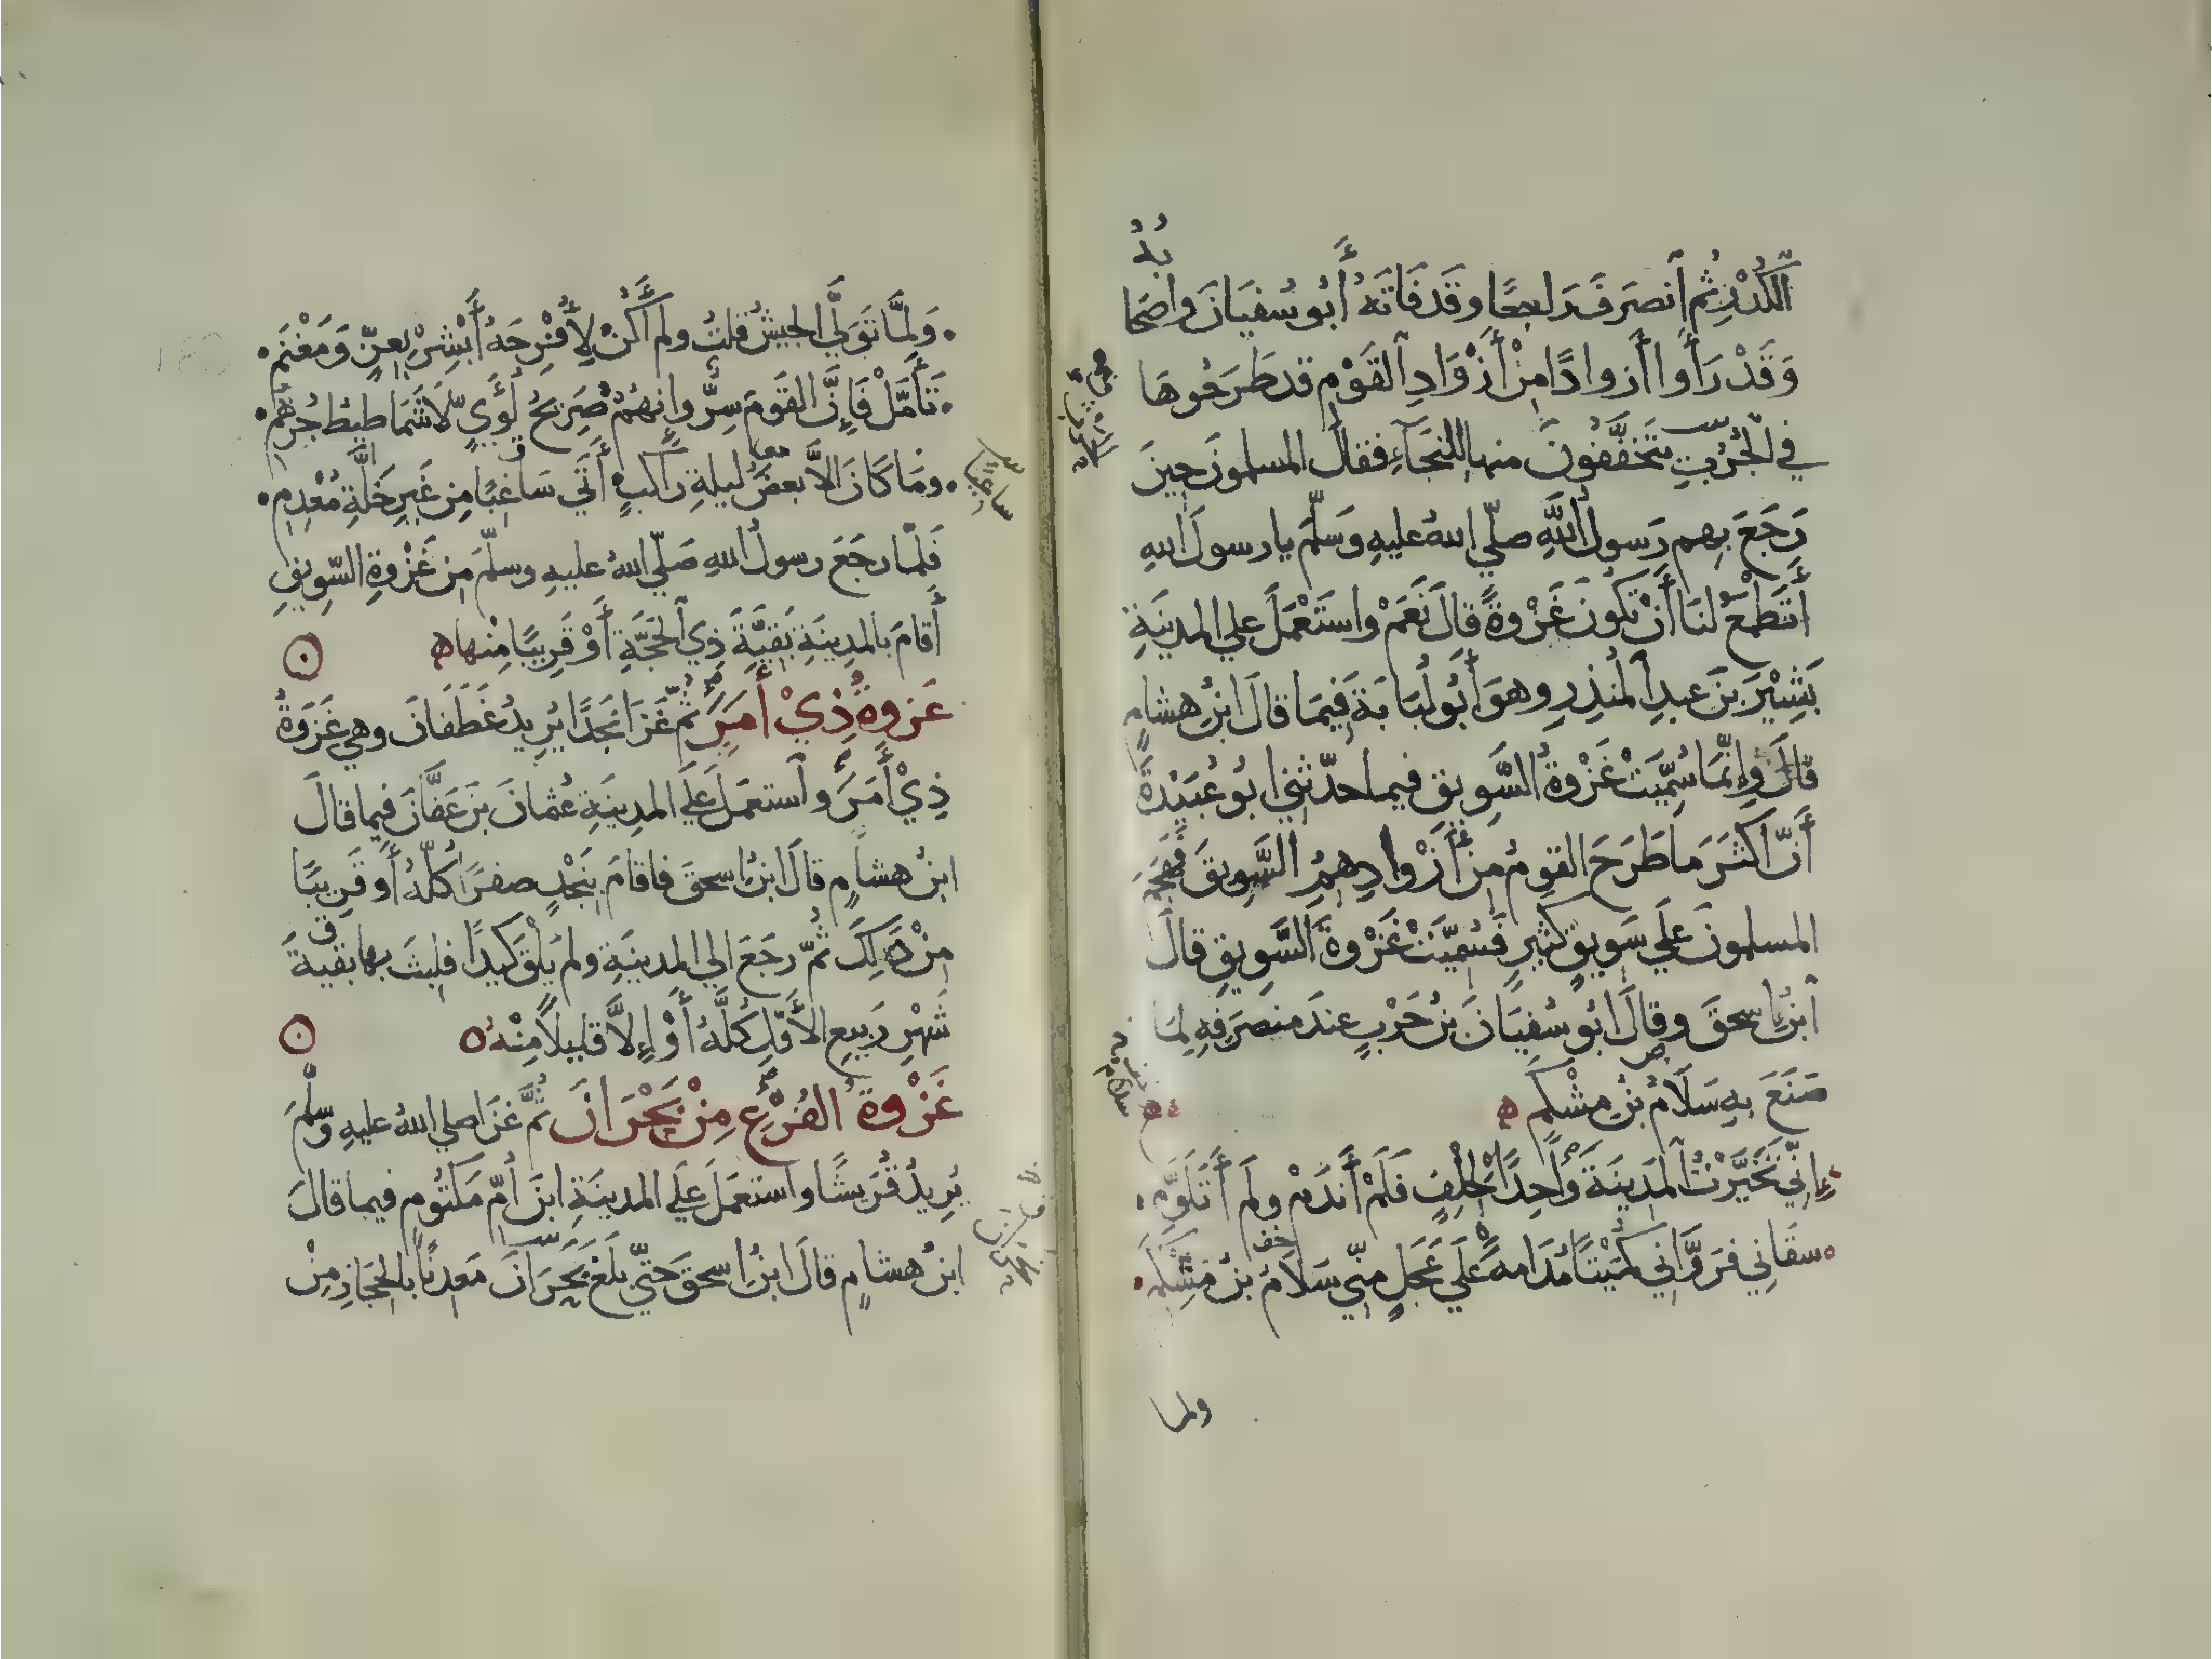 الكُدْرِ ثُمَّ ٱنصَرَفَ رَاجعًا وقَدْ فَاتَهُ أَبُو سُفيَانَ واَصْحَا
بُهُ
وَقَدْ رَأَوا أَزوادًا مِنْ أَزْوَادِ ٱلقَوْمِ قد طَرَحُوهَا
في الْجُرُبِ يَتَخفَّفُونَ منها للنَجَآءِ فقالَ المسلمونَ حِينَ
رَجَعَ بِهِم رَسولُ اللَّهِ صلّي اللهُ عليهِ وَسَلَّمَ يا رسولَ اللهِ
أَتَطْمَعُ لنَا أَنْ تكونَ غَزْوةً قالَ نَعَمْ واستَعْمَلَ علي المدينَةِ
بَشِيْرَ بنَ عبدِ ٱلمُنذِرِ وهوَ أَبُو لُبَابَةَ فِيمَا قالَ ابنُ هشامٍ
قالَ وإِنّمَا سُمِّيَتْ غَزْوةُ السَّوِيقِ فيما حدّثني ابُو عُبَيْدةَ
أَنّ اكثَرَ ما طَرَحَ القومُ مِن أَزْوادِهِمُ السَّوِيقَ فهَجَمَ
المسلمونَ عَلَي سَويقٍ كثيرٍ فَسُمِّيَتْ غَزْوةَ السَّوِيقِ قالَ
ٱبنُ إسحقَ وقالَ ابُو سُفيَانَ بنُ حَرْبٍ عندَ منصَرَفِهِ لِمَا
صَنَعَ بهِ سَلَامُ بنُ مِشْكَمٍ
إِنّي تَخَيَّرْتُ المَدِينَةَ وَاحِدًا لِحْلْفٍ فَلَمْ أَندَمْ ولَم أَتَلَوَّمِ
سقَانِي فرَوَّاني كُمَيْتًا مُدَامةً عَلَي عَجَلٍ منّي سَلَامُ بنُ مِشْكَمِ
ولما
وَلَمَّا تَوَلَّي الجيشُ قلتُ ولم أَكُنْ لِأُفْرِحَهُ أَبْشِرْ بِعِزٍّ وَمَغْنَمِ
تَأَمَّلْ فَإِنَّ القَومَ سِرٌّ وإِنهُمْ صَرِيحُ لُؤَيٍّ لَا شَمَاطِيطُ جُرْهُمِ
ومَا كَانَ الاَّ بعضُ ليلةِ رَاكبٍ أَتَي سَاغِبًا مِن غَيرِ خَلَّةِ مُعْدِمِ
فَلمّا رجَعَ رسولُ اللهِ صَلّي اللهُ عليهِ وسلّمَ مِن غَزْوةِ السَّوِيقِ
أَقامَ بالمدِينَةِ بَقِيَّةَ ذِي ٱلحَجَّةِ أَوْ قَرِيبًا مِنْها
غَزوةُ ذِيْ أَمَرَ ثمّ غَزَا نَجْدًا يُرِيدُ غَطَفَانَ وهي غَزْوَةُ
ذِيْ أَمَرَ وٱستعمَلَ عَلَي المدِينَةِ عُثمانَ بنَ عَفَّانَ فيما قالَ
ابنُ هشامٍ قالَ ابنُ إسحقَ فاقامَ بنَجْدٍ صفرًا كلَّهُ أَو قَرِيبًا
مِنْ ذَلِكَ ثُمّ رجَعَ الي المدينَةِ ولم يَلْقَ كَيدًا فلبثَ بها بقيةَ
شَهْرِ رَبيعٍ الأَوَّلِ كُلَّهُ أَوْ إِلاَّ قليلاً مِنْهُ
غَزْوةُ الفُرْعِ مِنْ بَحْرَانَ ثمَّ غَزَا صلي اللهُ عليهِ وسلّمَ
يُرِيدُ قُرَيشًا واستعمَلَ عَلَي المدينَةِ ابنَ أُمِّ مَكتُومٍ فيما قالَ
ابنُ هشامٍ قالَ ابنُ إسحقَ حتّي بَلَغَ بَحْرَانَ مَعدِنًا بالحِجَازِ مِنْ